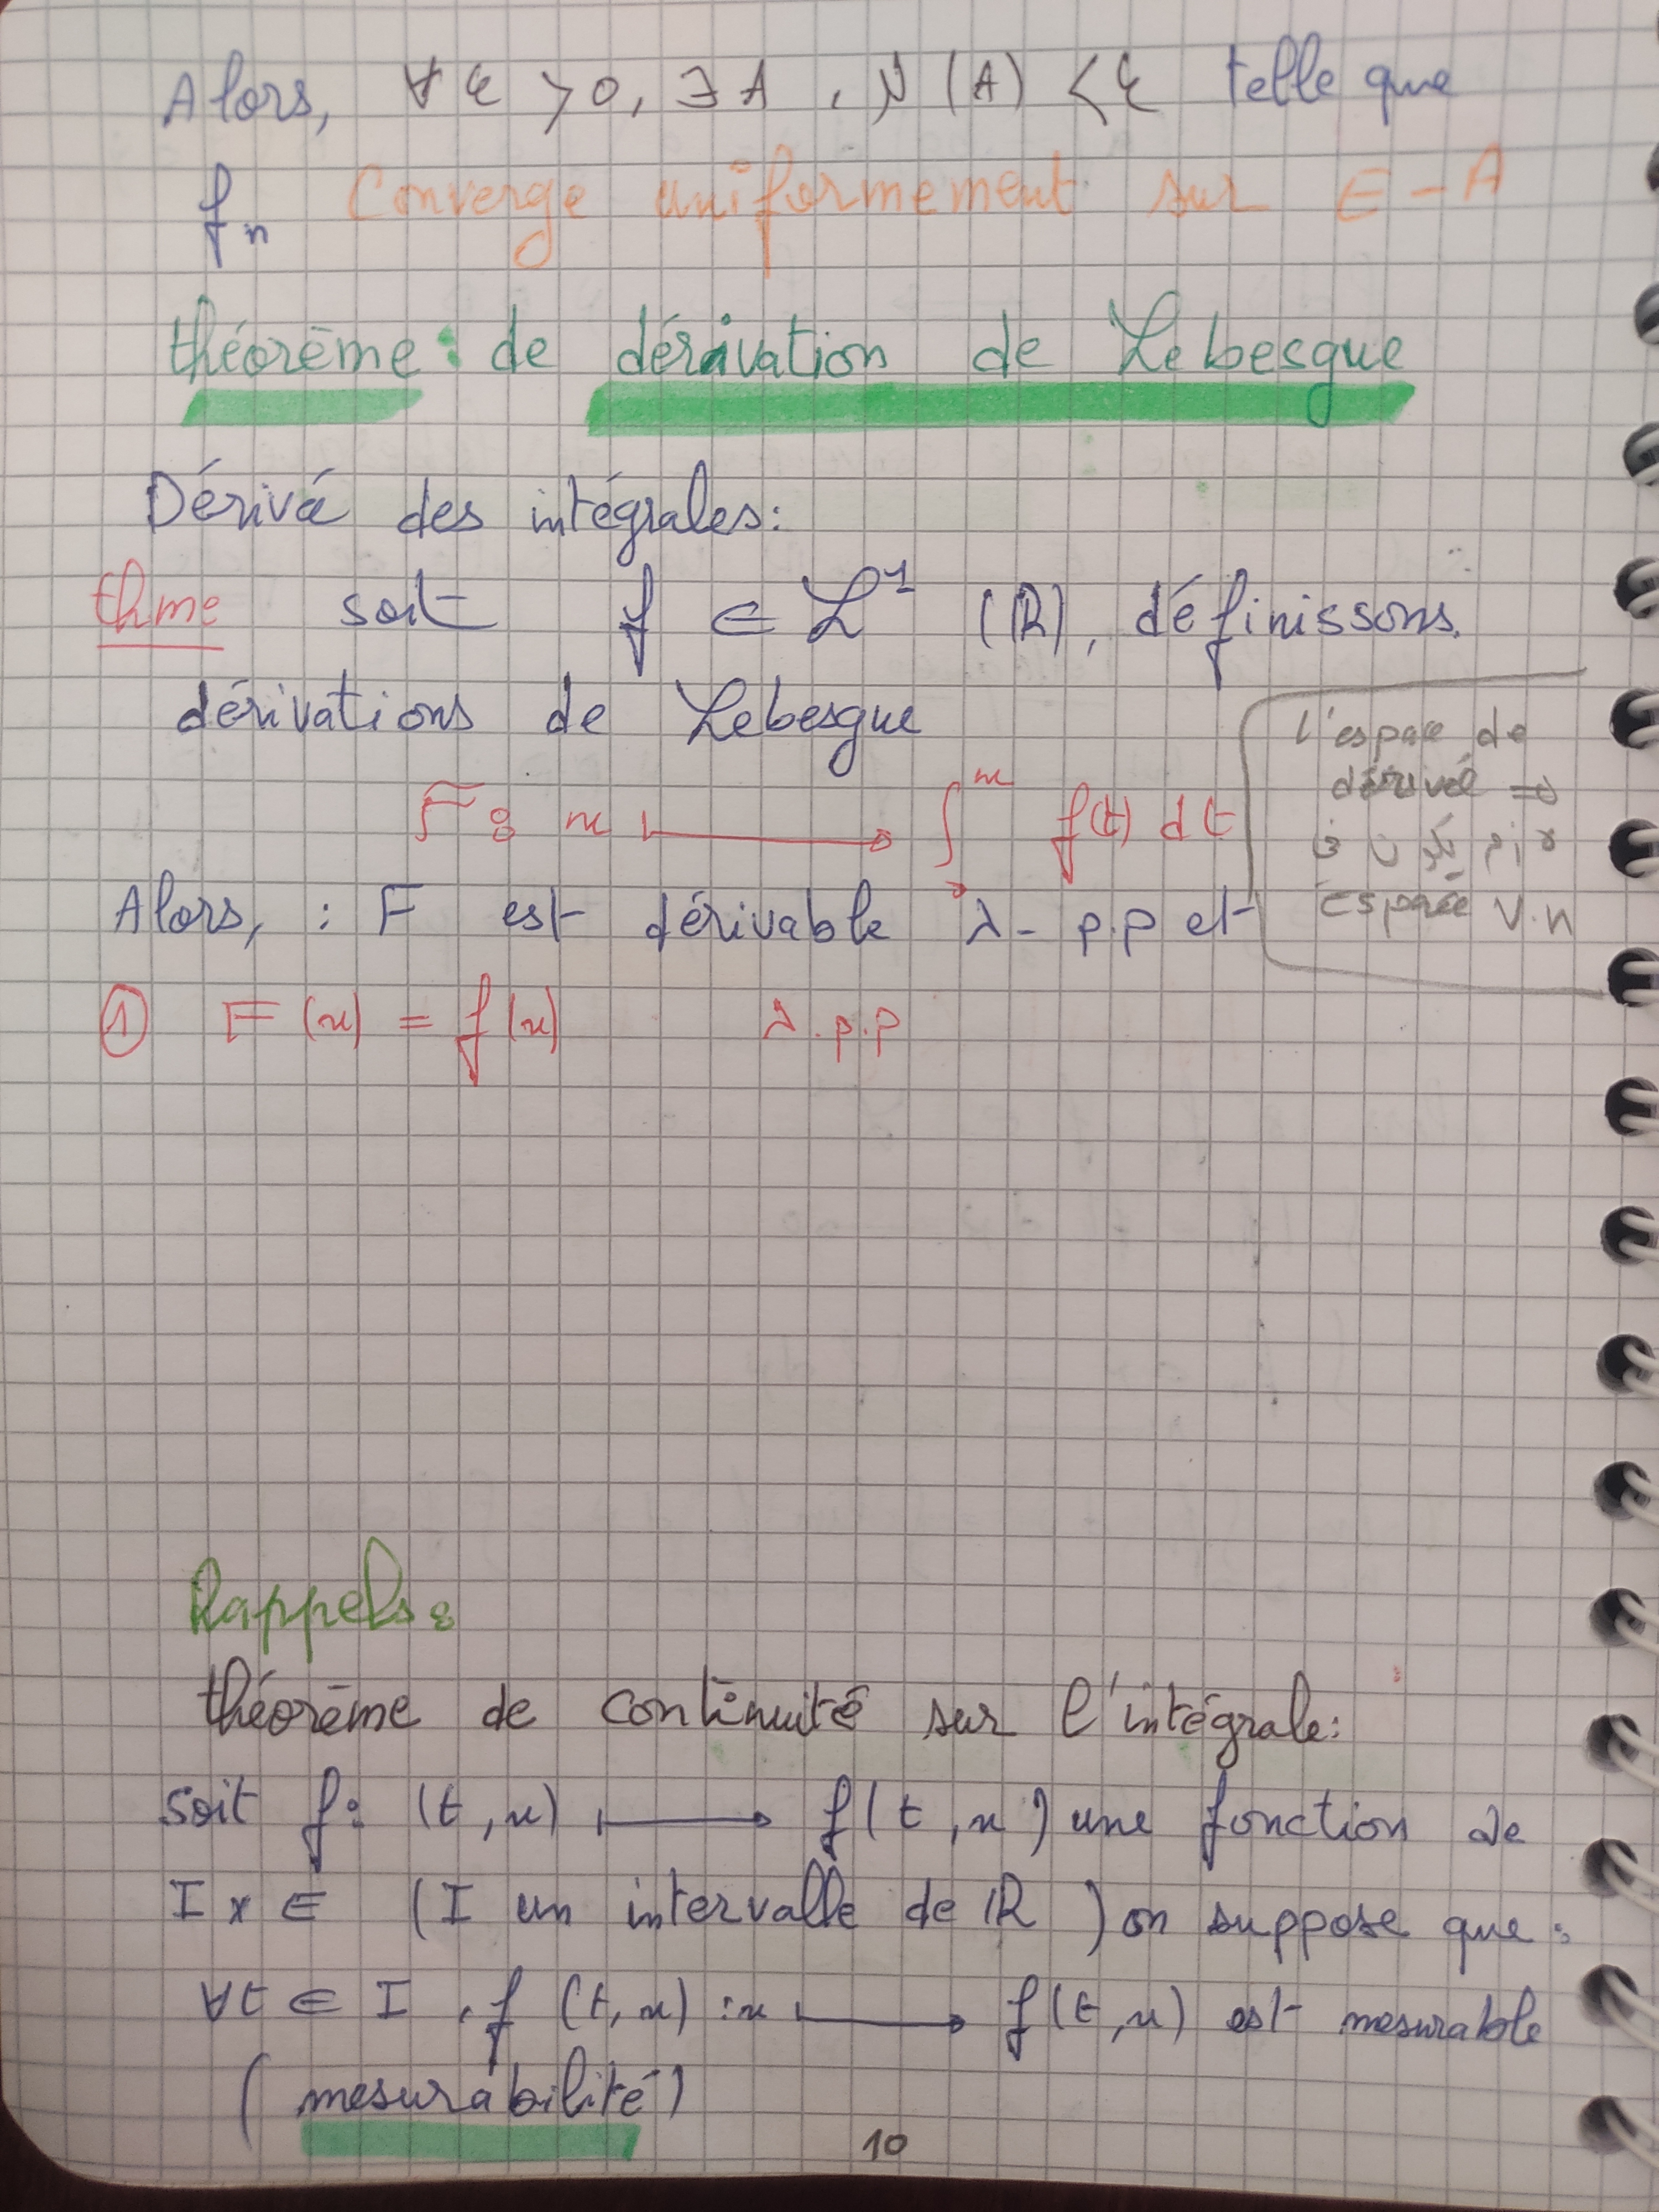 Alors, ∀ ε > 0, ∃ A , ν (A) < ε telle que
fn Converge uniformement sur E - A
théorème : de dérivation de Lebesgue
Dérivé des intégrales :
thme soit f ∈ L¹ (ℝ), définissons.
dérivations de Lebesgue
F : x ⟼ ∫₀ˣ f(t) dt
l'espace de
dérivé ⇒
لازم يكون في
espace V.N
Alors, : F est dérivable λ - p.p et
① F (x) = f (x) λ . p . p
Rappels :
théorème de continuité sur l'intégrale :
soit f : (t, x) ⟼ f(t, x) une fonction de
I x E (I un intervalle de ℝ) on suppose que :
∀t ∈ I , f (t, x) : x ⟼ f(t, x) est mesurable
( mesurabilité)
10